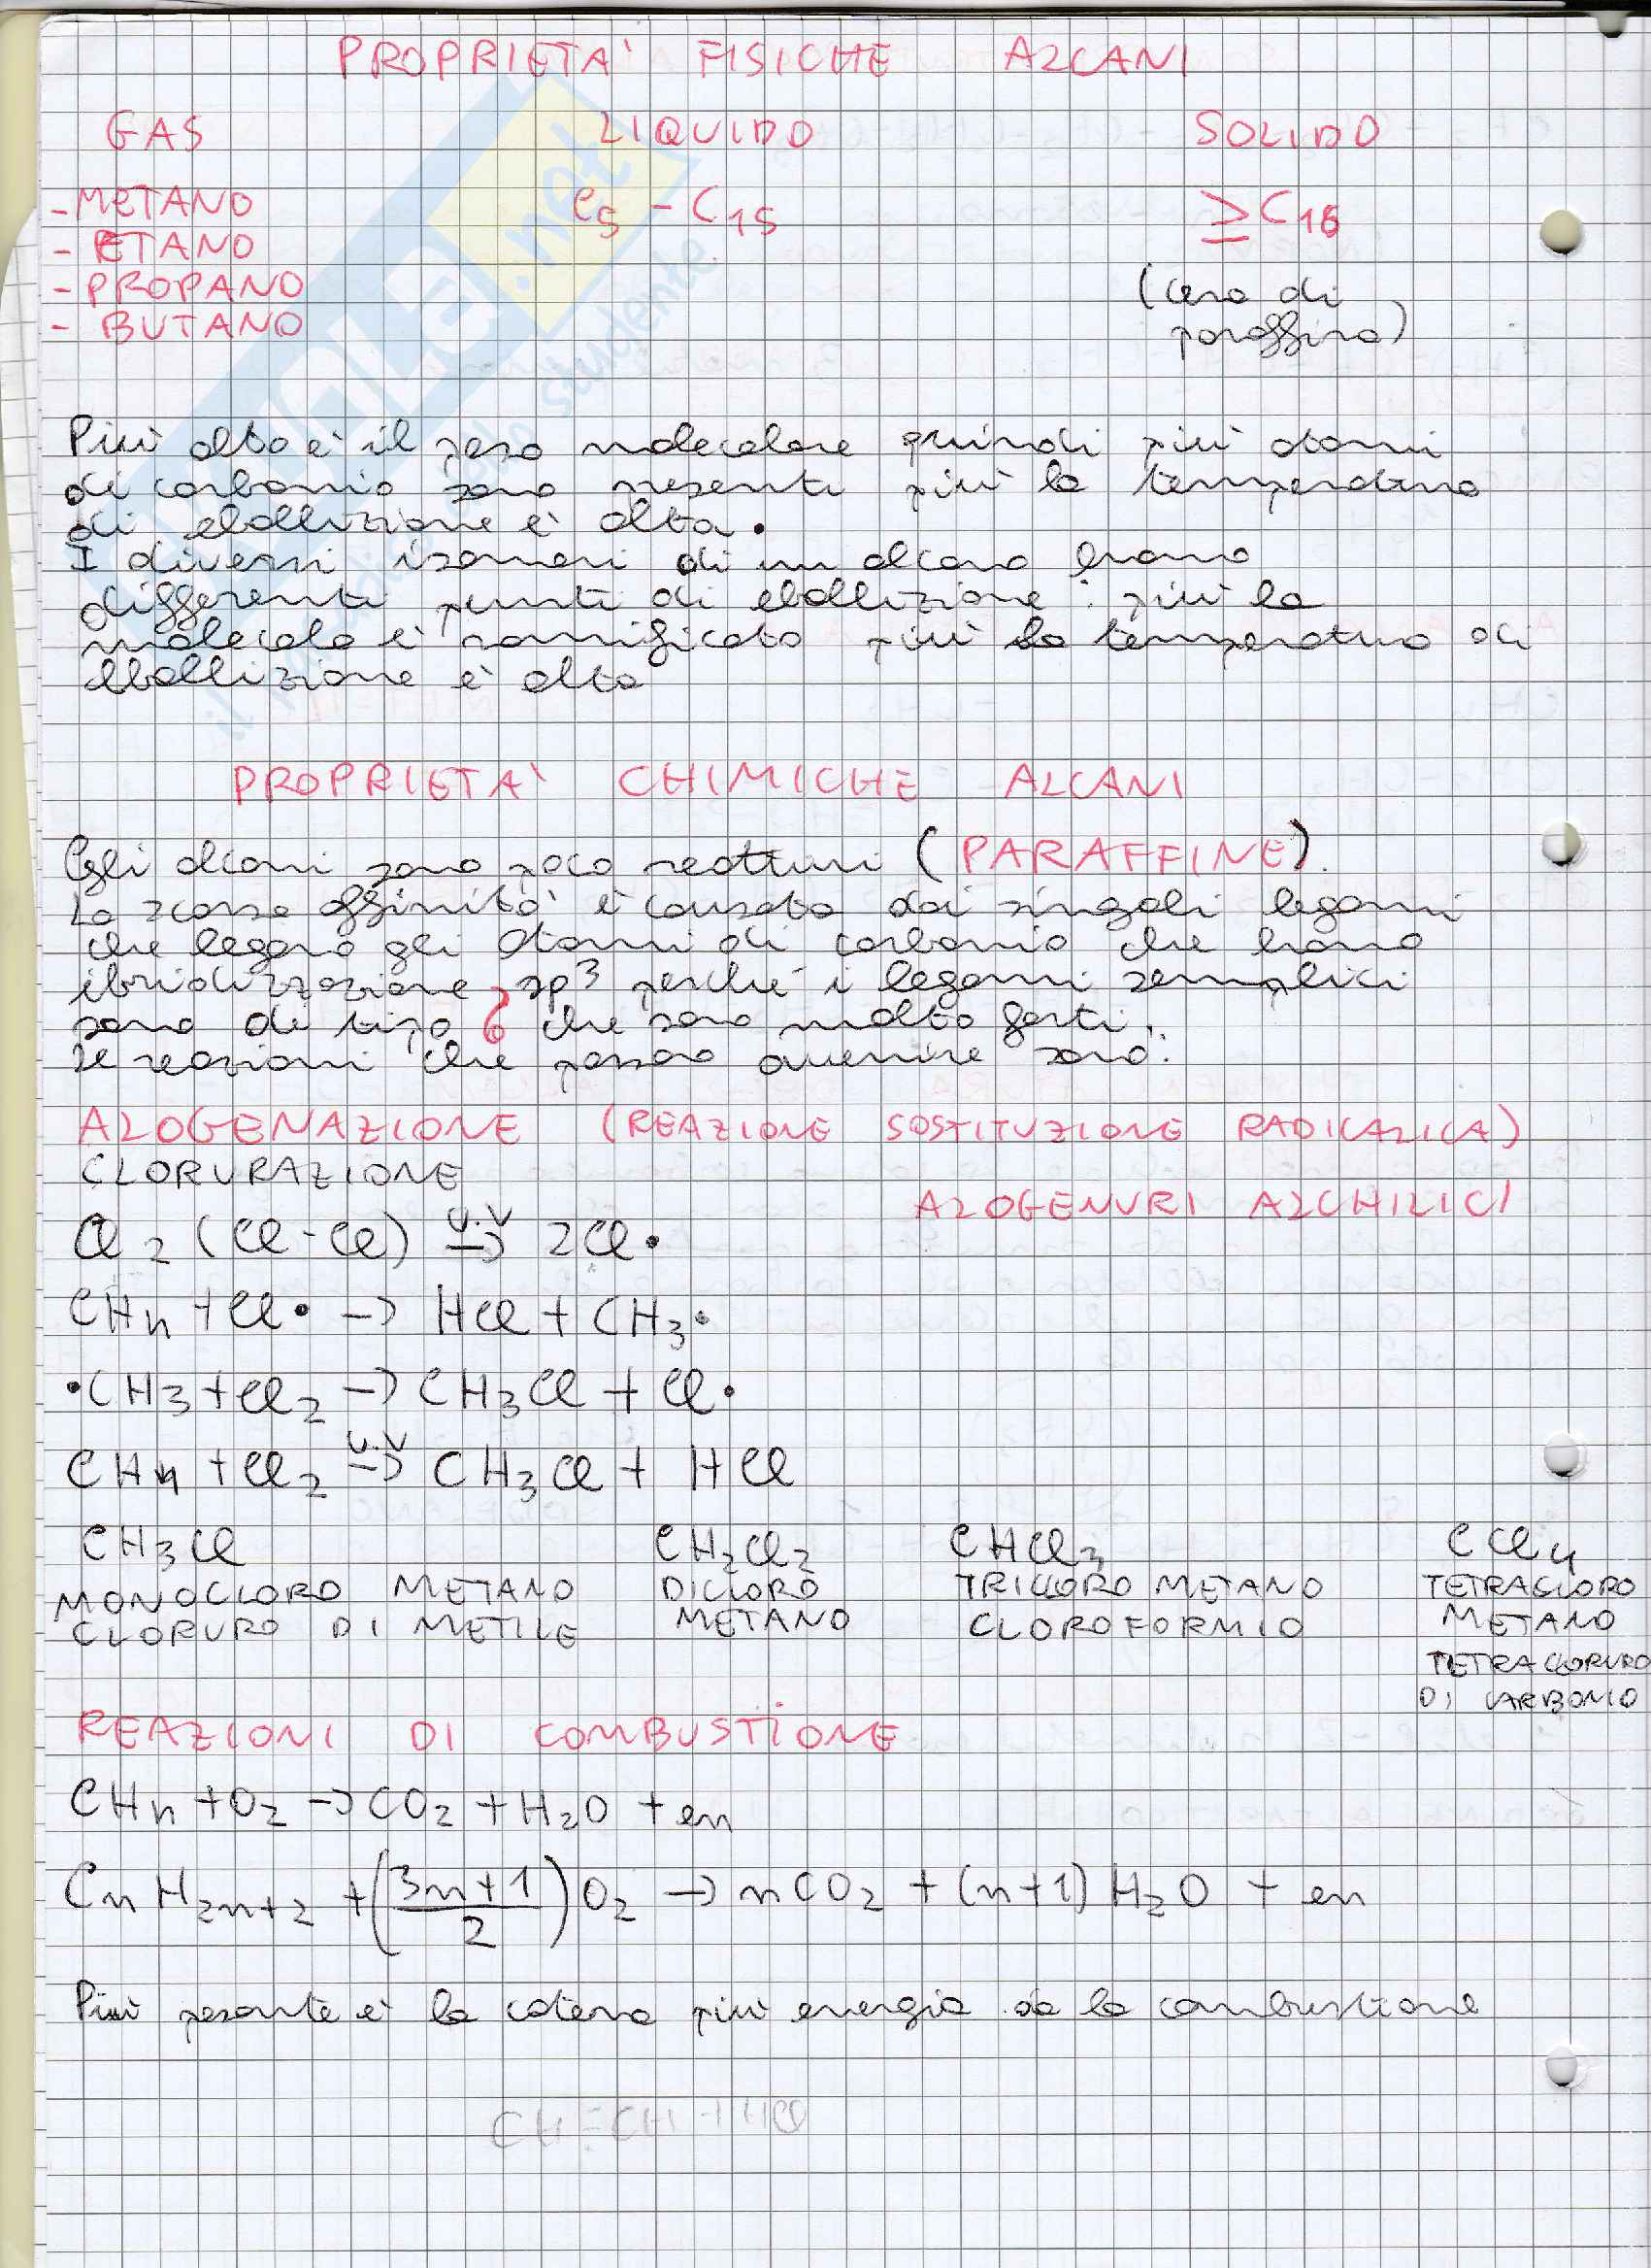 PROPRIETA' FISICHE ALCANI
GAS LIQUIDO SOLIDO
- METANO C5 - C15 ≥ C16
- ETANO
- PROPANO (cera di
- BUTANO paraffina)
Più alto è il peso molecolare quindi più atomi
di carbonio sono presenti più la temperatura
di ebollizione è alta.
I diversi isomeri di un alcano hanno
differenti punti di ebollizione: più la
molecola è ramificata più la temperatura di
ebollizione è alta
PROPRIETA' CHIMICHE ALCANI
Gli alcani sono poco reattivi (PARAFFINE).
La scarsa affinità è causata dai singoli legami
che legano gli atomi di carbonio che hanno
ibridizzazione sp³ perché i legami semplici
sono di tipo σ che sono molto forti.
Le reazioni che possono avvenire sono:
ALOGENAZIONE (REAZIONE SOSTITUZIONE RADICALICA)
CLORURAZIONE
ALOGENURI ALCHILICI
Cl2 (Cl-Cl) U.V → 2Cl•
CH4 + Cl• → HCl + CH3•
•CH3 + Cl2 → CH3Cl + Cl•
CH4 + Cl2 U.V → CH3Cl + HCl
CH3Cl CH2Cl2 CHCl3 CCl4
MONOCLORO METANO DICLORO TRICLORO METANO TETRACLORO
CLORURO DI METILE METANO CLOROFORMIO METANO
TETRACLORURO
DI CARBONIO
REAZIONI DI COMBUSTIONE
CH4 + O2 → CO2 + H2O + en
CnH2n+2 + (3n+1/2) O2 → nCO2 + (n+1) H2O + en
Più pesante è la catena più energia da la combustione
CH≡CH + HCl